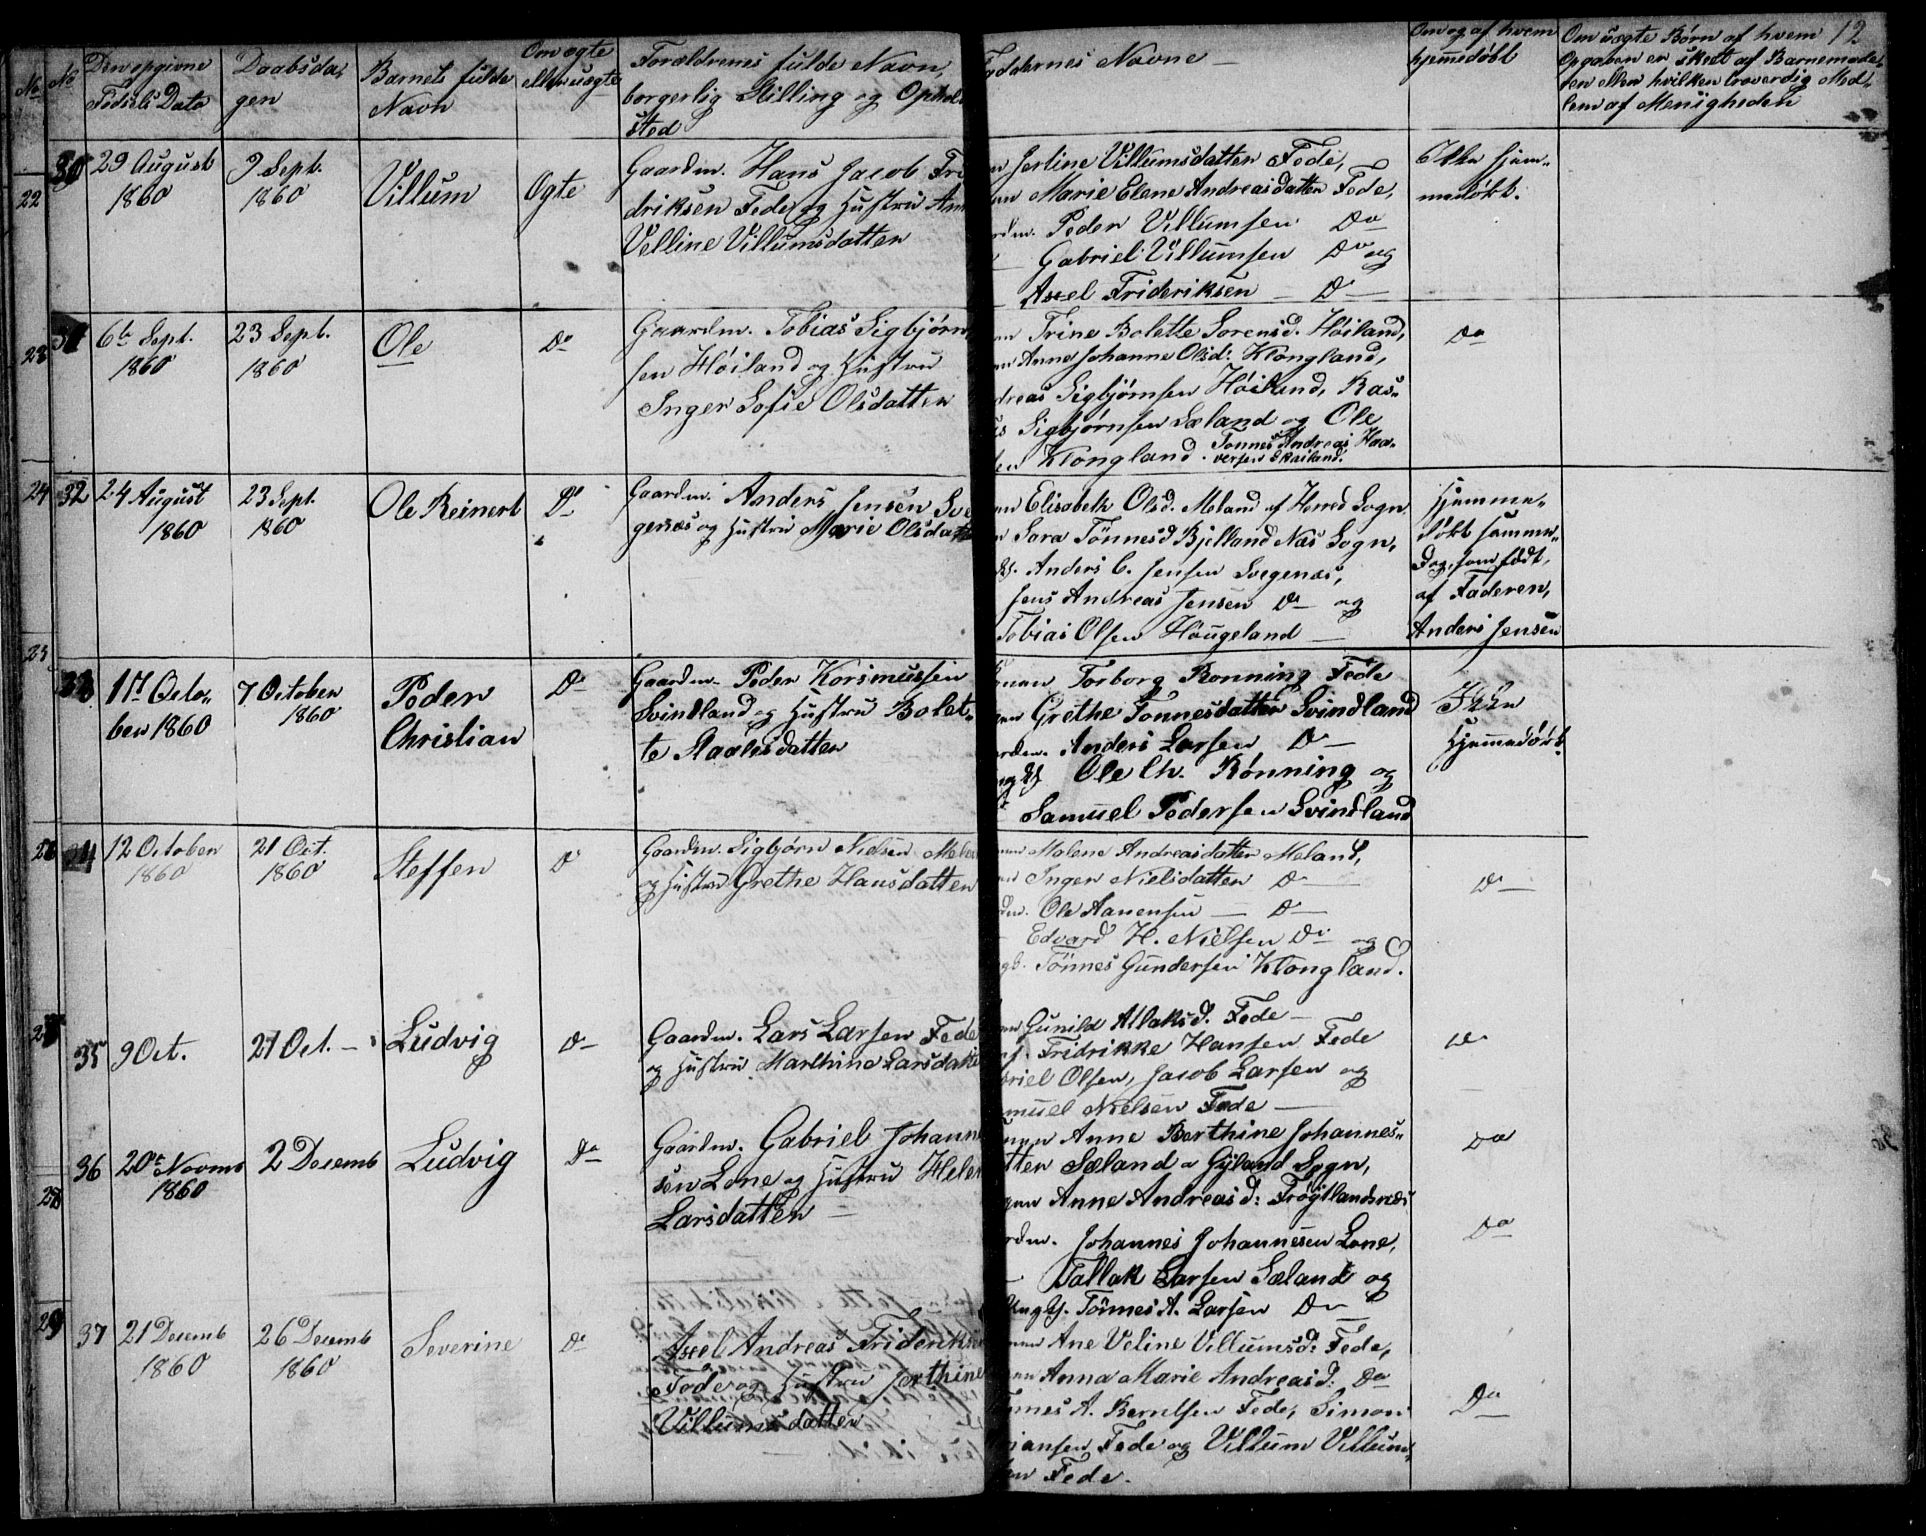 12
No No Den opgivne Fødsels Dato
Daabsda, gen
Barnets fulde Navn
Om ægte eller uægte
Forældrenes fulde Navn, borgerlig Stilling og Ophol sted
Faddernes Navne
Om og af hvem hjemmedøbt
Om uægte Børn af hvem Opgaven er skeet af Barnemode, ren eller hvilken troverdig Med, lem af Menigheden
22 30 29 August 1860
9 Sept. 1860
Villum
Ægte
Gaardm. Hans Jacob Fri
driksen Fede og Hustru Ann
Velline Villumsdatter
Jertine Villumsdatter Fede,
Marie Elene Andreasdatter Fede,
Peder Villumsen Do
Gabriel Villumsen Do og
Axel Frideriksen Do
Ikke hjem„
medøbt.
23 31 6te Sept. 1860
23 Sept. 1860
Ole
Do
Gaardm. Tobias Sigbjørn
sen Høiland og Hustru
Inger Sofie Olsdatter
Trine Bolette Sorensd. Høiland,
Anne Johanne Olsd: Klongland,
dreas Sigbjørnsen Høiland, Ras„
Sigbjørnsen Sæland og Ole
Klongland. Tonnes Andreas Haa„
versen Skailand.
Do
24 32 24 August 1860
23 Sept. 1860
Ole Reinert
Do
Gaardm. Anders Jensen Sve
genæs og Hustru Marie Olsdatt
Elisabeth Olsd. Meland af Herred Sogn
Sara Tönnesd Bjelland Næs Sogn,
Anders C. Jensen Svegenæs,
Jens Andreas Jensen Do og
Tobias Olsen Haugeland
Hjemme„
døbt samme„
Dag, som født,
af Faderen,
Anders Jensen
25 33 1st Octo„
ber 1860
7 October 1860
Peder
Christian
Do
Gaardm. Peder Korsmussen
Svindland og Hustru Bolet„
te Staalesdatter
Torborg Ronning Fede
Grethe Tonnesdatter Svindland
Anders Larsen Do
Ole Ch. Rönning og
Samuel Pedersen Svindland
Ikke
Hjemmedøbt
26 34 12 October 1860
21 Oct. 1860
Steffen
Do
Gaardm. Sigbjørn Nielsen Melan
og Hustru Grethe Hansdatter
Malene Andreasdatter Meland,
Inger Nielsdatter Do
Ole Aanensen Do
Edvard H. Nielsen Do og
Tönnes Gundersen Klongland.
Do
27 35 9 Oct.
21 Oct.
Ludvig
Do
Gaardm. Lars Larsen Fede
og Hustru Marthine Larsdatte
Gunild Atlaksd. Fede
Fridrikke Hansen Fede
briel Olsen, Jacob Larsen og
muel Nielsen Fede
Do
28 36 20de Novmb 1860
2 Decemb
Ludvig
Do
Gaardm. Gabriel Johanne
sen Lone og Hustru Helen
Larsdatter
Anne Berthine Johannes„
tter Sæland a Gyland Sogn,
Anne Andreasd: Frøytlandsnæs
Johannes Johannesen Lone,
Tallak Larsen Sæland og
Ung K. Tönnes A. Larsen Do
Do
Do
29 37 21 Decemb 1860
26 Decemb 1860
Severine
Do
Axel Andreas Friderikse
Fede og Hustru Jerthine
Villumsdatter
Ane Veline Villumsd: Fede,
Anna Marie Andreasd. Do
nnes A. Berntsen Fede, Simon
iansen Fede og Villum Villum„
sen Fede.
Do